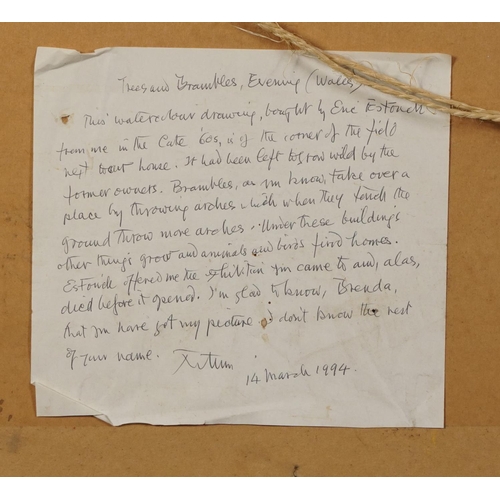 Trees and Brambles, Evening (Wales)
This watercolour drawing, bought by Eric Estorick
from me in the late '60s, is of the corner of the field
next to our house. It had been left to grow wild by the
former owners. Brambles, as you know, take over a
place by throwing arches which when they touch the
ground throw more arches. Under these buildings
other things grow and animals and birds find homes.
Estorick offered me the exhibition you came to and, alas,
died before it opened. I'm glad to know, Brenda,
that you have got my picture. I don't know the rest
of your name.
14 March 1994.